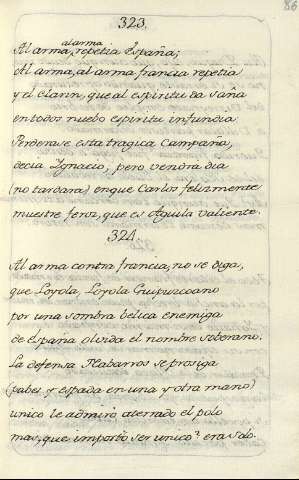 86
323.
Al arma, al arma, repetia España;
Al arma, al arma francia repetia
y el clarin, que al espiritu da saña
en todos nuebo espiritu infundia
Perderase esta tragica Campaña,
decia Ygnacio, pero vendrà dia
(no tardara) en que Carlos felizmente
muestre feroz, que es Aguila valiente.
324.
Al arma contra francia, no se diga,
que Loyola, Loyola Guipuzcoano
por una sombra belica enemiga
de España olvida el nombre soberano.
La defensa Nabarros se prosiga
(pabes y espada en una y otra mano)
unico le admirò aterrado el polo
mas, que importò ser unico? era solo.